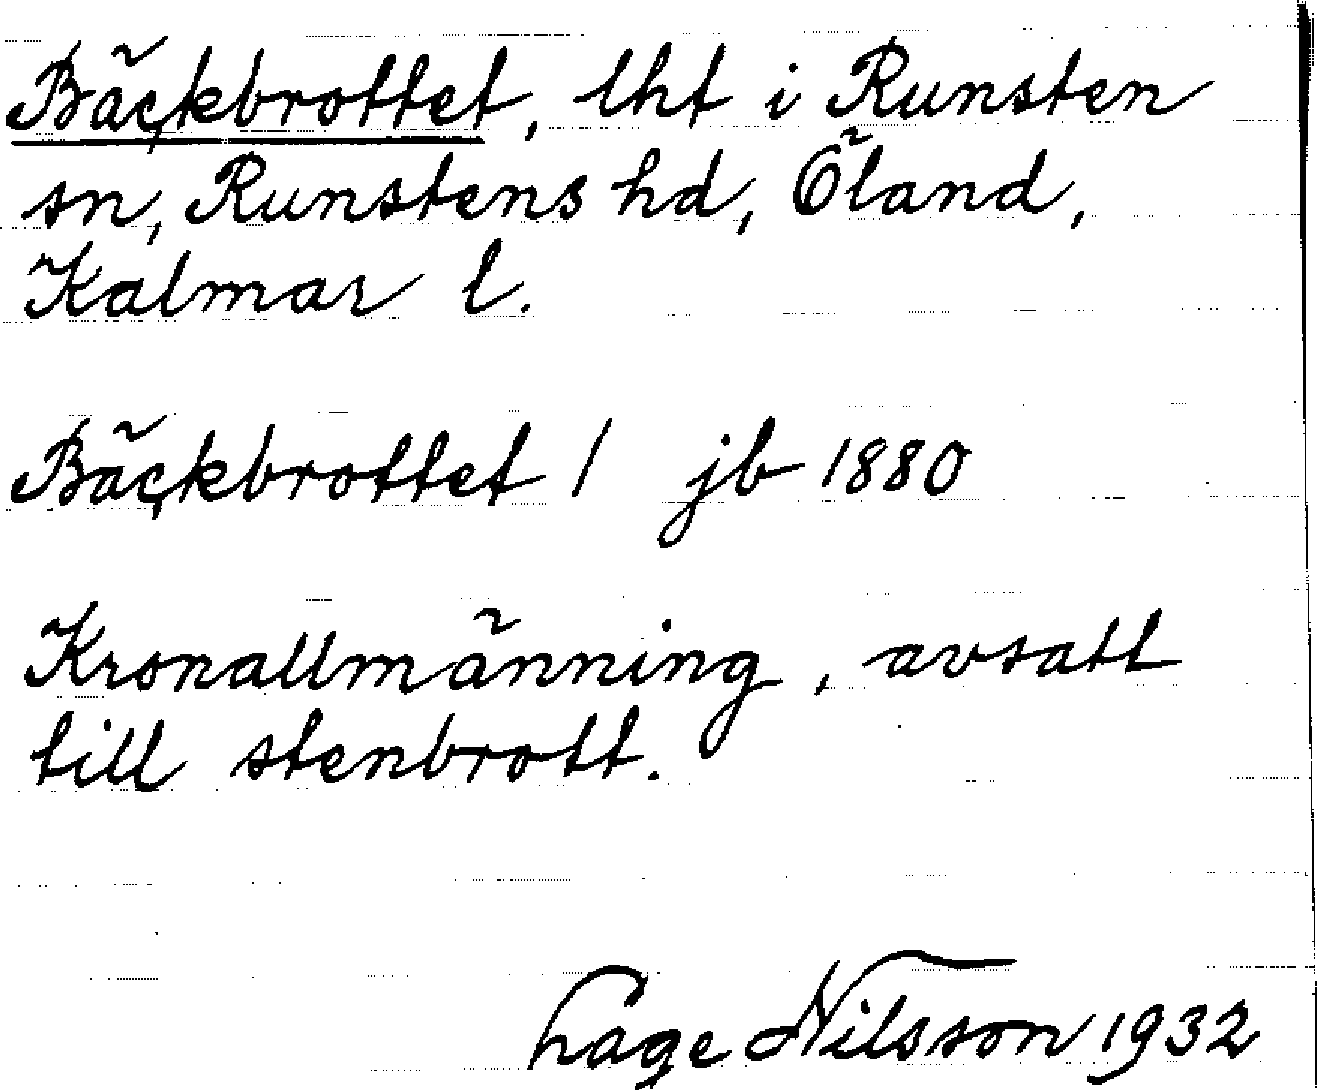 Bäckbrottet, lht i Runsten
sn, Runstens hd, Öland,
Kalmar l.
Bäckbrottet 1 jb 1880
Kronallmänning, avsatt
till stenbrott.
Hage Nilsson 1932